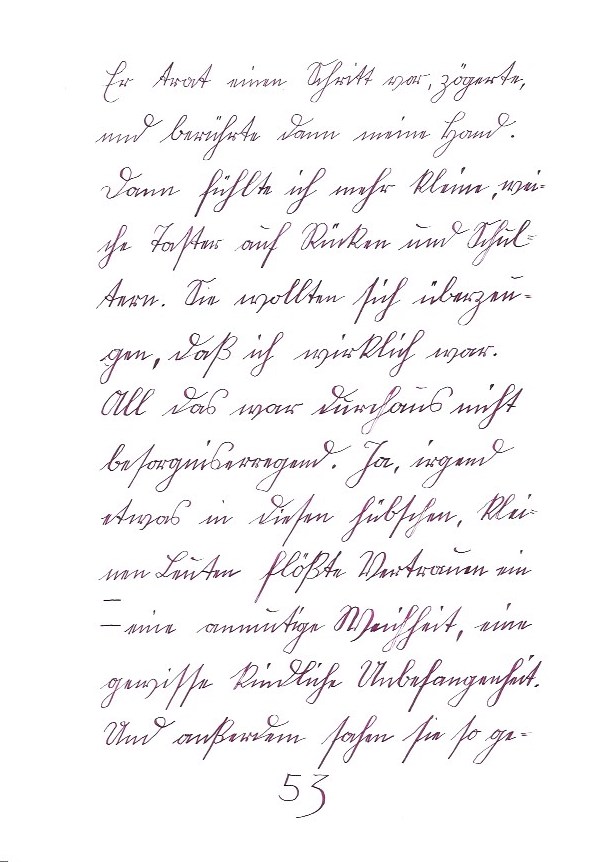 Er trat einen Schritt vor, zögerte,
und berührte dann meine Hand.
Dann fühlte ich mehr kleine, wei=
che Taster auf Rücken und Schul=
tern. Sie wollten sich überzeu=
gen, daß ich wirklich war.
All das war durchaus nicht
besorgniserregend. Ja, irgend
etwas in diesen hübschen, klei=
nen Leuten flößte Vertrauen ein
– eine anmutige Weichheit, eine
gewisse kindliche Unbefangenheit.
Und außerdem sahen sie so ge=
53